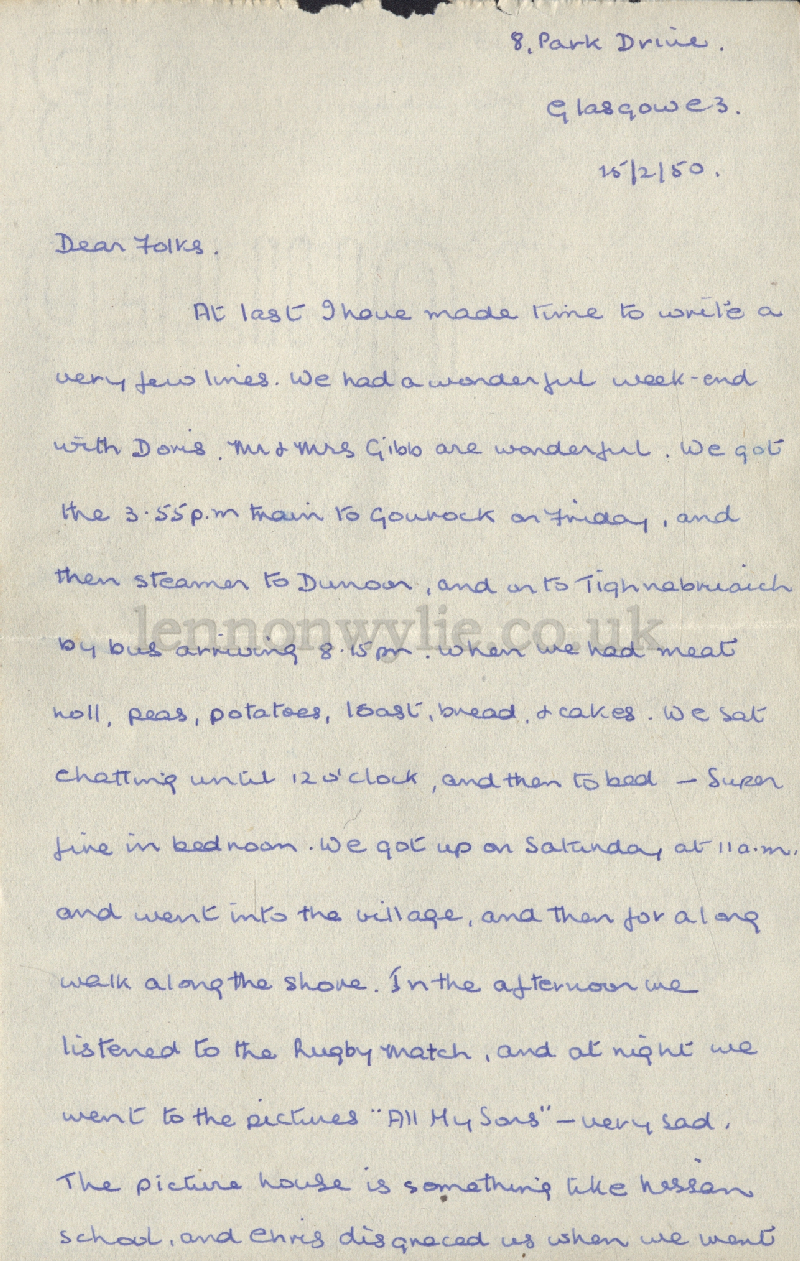 8, Park Drive.
Glasgow C3.
15/2/50.
Dear Folks.
At last I have made time to write a
very few lines. We had a wonderful week-end
with Doris. Mr & Mrs Gibb are wonderful. We got
the 3.55p.m train to Gourock on Friday, and
then steamer to Dunoon, and on to Tighnabruaich
lennonwylie.co.uk
by bus arriving 8.15pm. when we had meat
roll, peas, potatoes, toast, bread, & cakes. We sat
chatting until 12 o'clock, and then to bed — Super
fire in bedroom. We got up on Saturday at 11a.m.
and went into the village, and then for a long
walk along the shore. In the afternoon we
listened to the Rugby match, and at night we
went to the pictures "All My Sons" — very sad.
The picture house is something like
school, and Chris disgraced us when we went